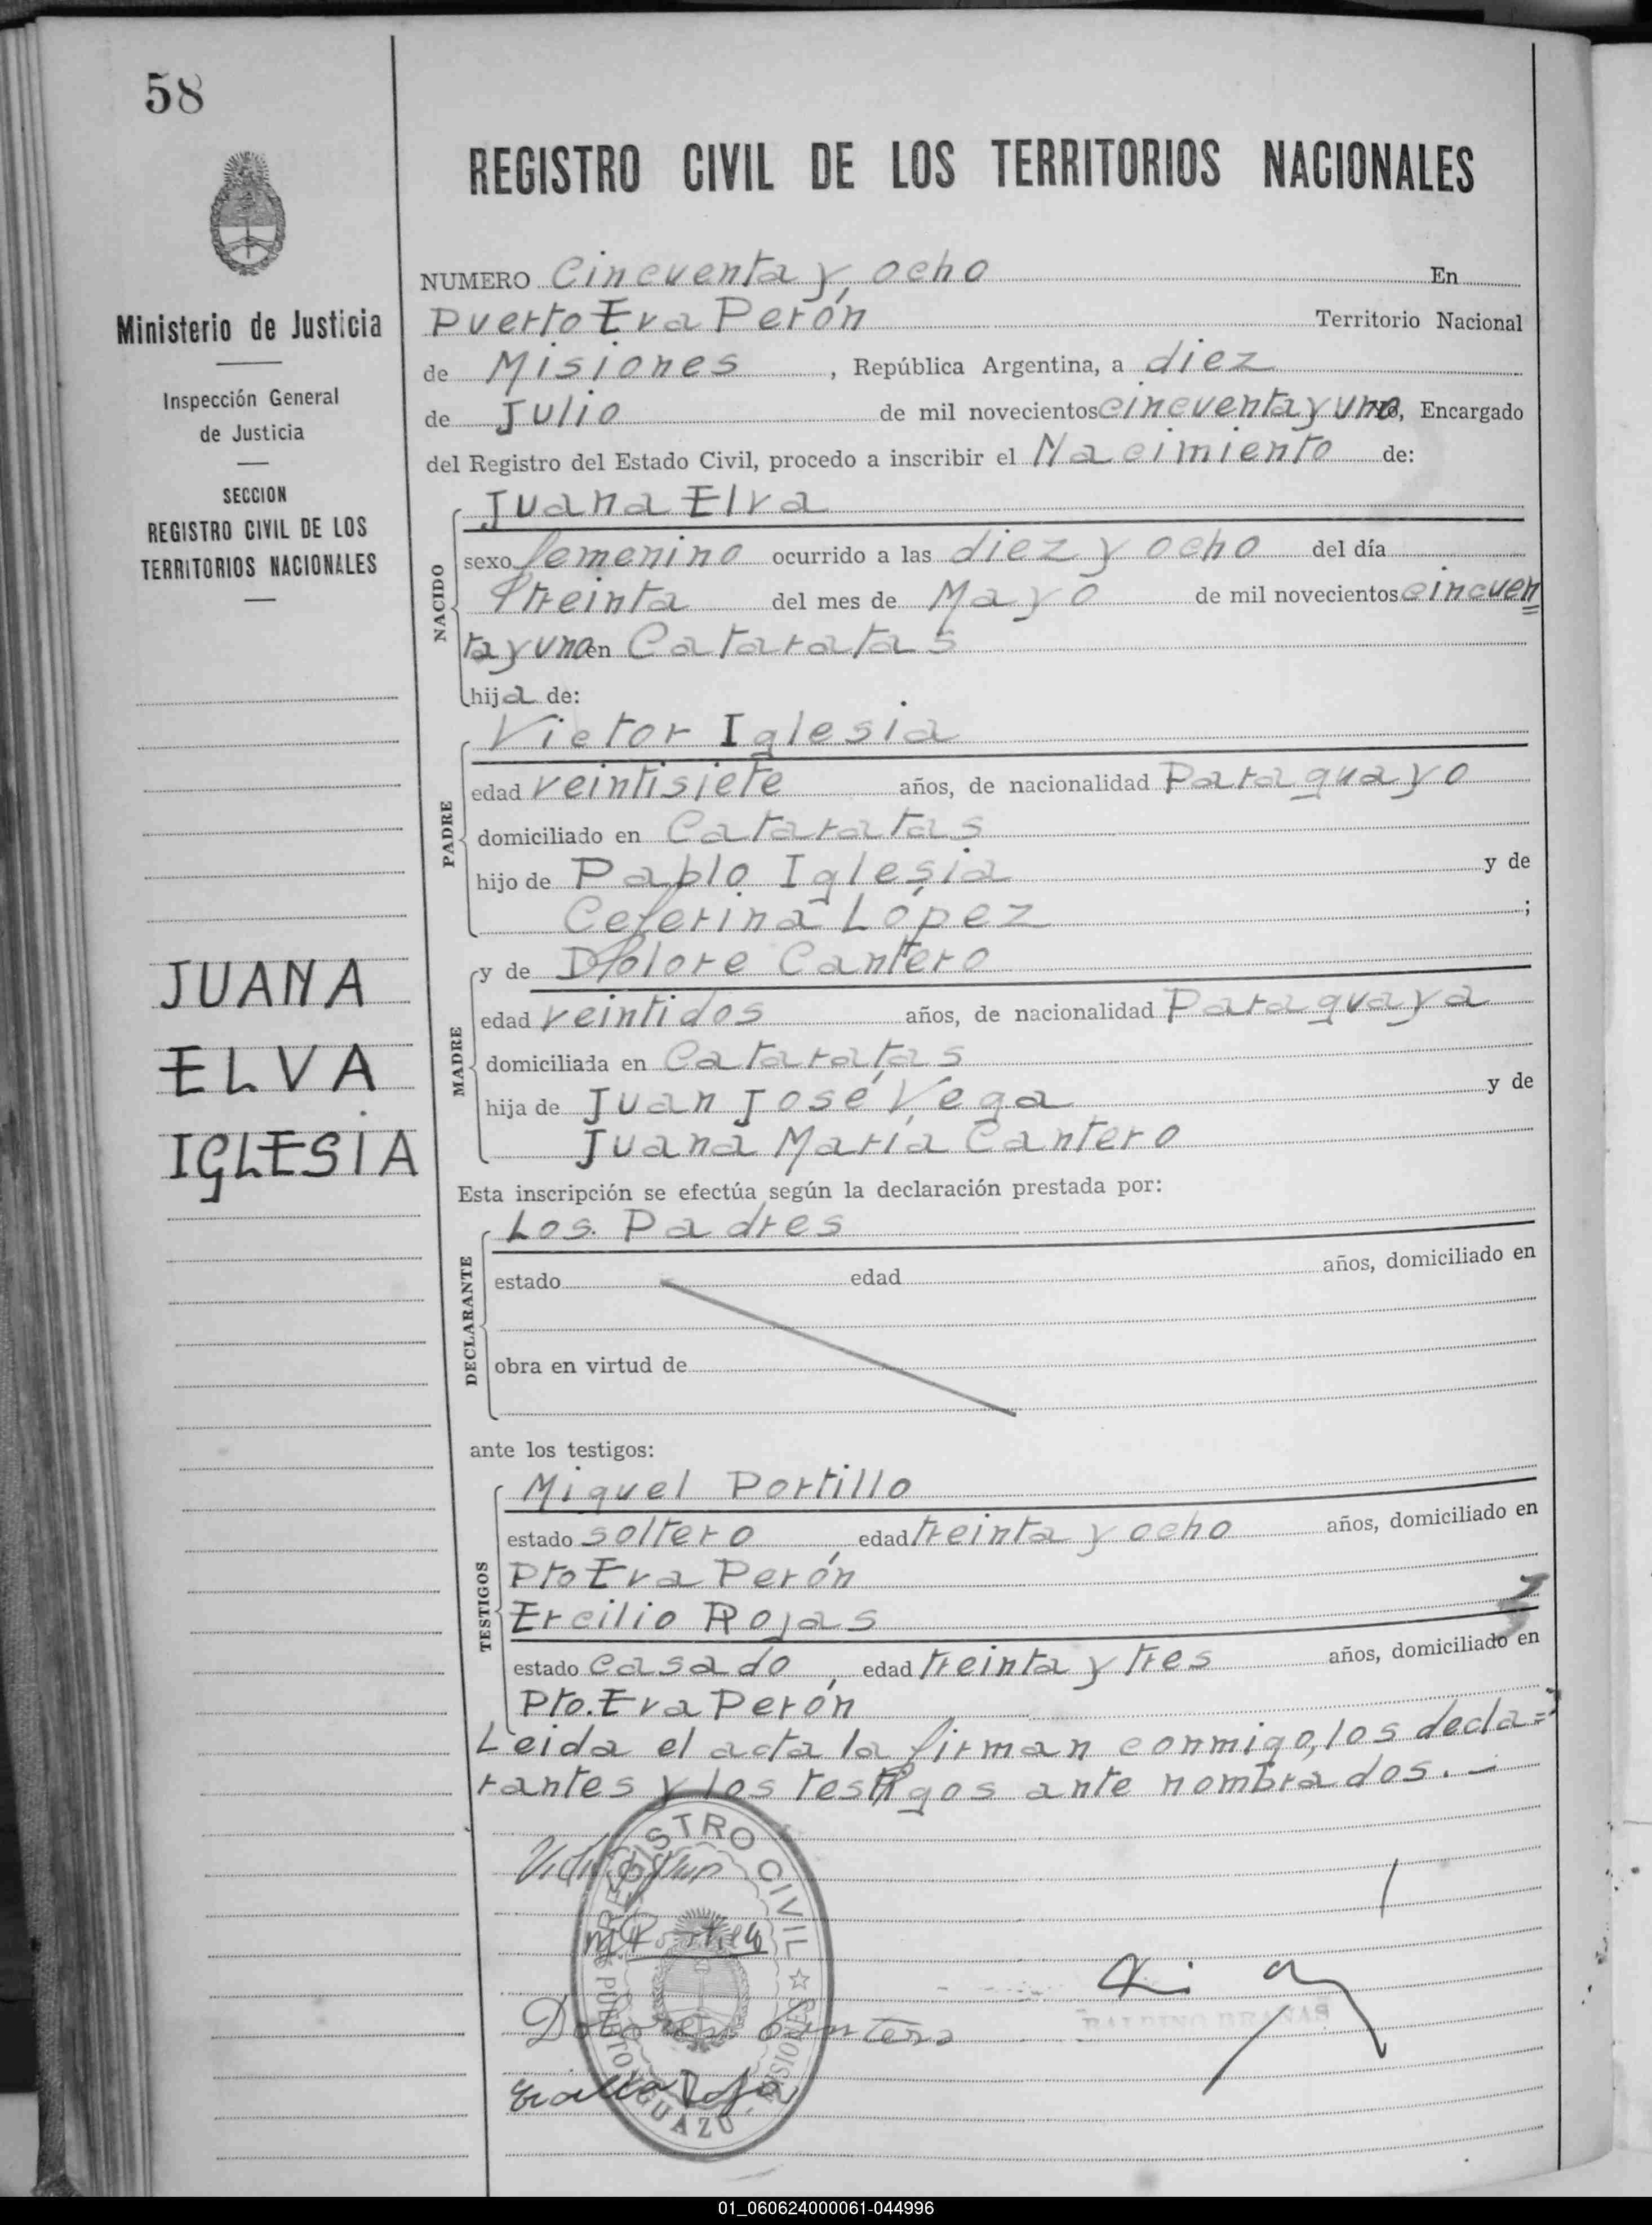 58
REGISTRO CIVIL DE LOS TERRITORIOS NACIONALES
Ministerio de Justicia
Inspección General
de Justicia
SECCION
REGISTRO CIVIL DE LOS
TERRITORIOS NACIONALES
NUMERO Cincuenta y ocho En
Puerto Eva Perón Territorio Nacional
de Misiones, República Argentina, a diez
de Julio de mil novecientos cincuenta y uno, Encargado
del Registro del Estado Civil, procedo a inscribir el Nacimiento de:
NACIDO
Juana Elva
sexo femenino ocurrido a las diez y ocho del día
treinta del mes de Mayo de mil novecientos cincuen
ta y uno en Cataratas
hija de:
PADRE
Victor Iglesia
edad veintisiete años, de nacionalidad Paraguayo
domiciliado en Cataratas
hijo de Pablo Iglesia y de
Ceferina López;
JUANA
ELVA
IGLESIA
MADRE
y de Dolore Cantero
edad veintidos años, de nacionalidad Paraguaya
domiciliada en Cataratas
hija de Juan José Vega y de
Juana María Cantero
Esta inscripción se efectúa según la declaración prestada por:
DECLARANTE
Los Padres
estado edad años, domiciliado en
obra en virtud de
ante los testigos:
TESTIGOS
Miguel Portillo
estado soltero, edad treinta y ocho años, domiciliado en
Pto Eva Perón
Ercilio Rojas
estado casado, edad treinta y tres años, domiciliado en
Pto. Eva Perón
Leida el acta la firman conmigo, los decla=
rantes y los testigos ante nombrados. -
REGISTRO CIVIL
PUERTO IGUAZU
MISIONES
Dolores Cantero
BALBINO BRAÑAS
01_060624000061-044996